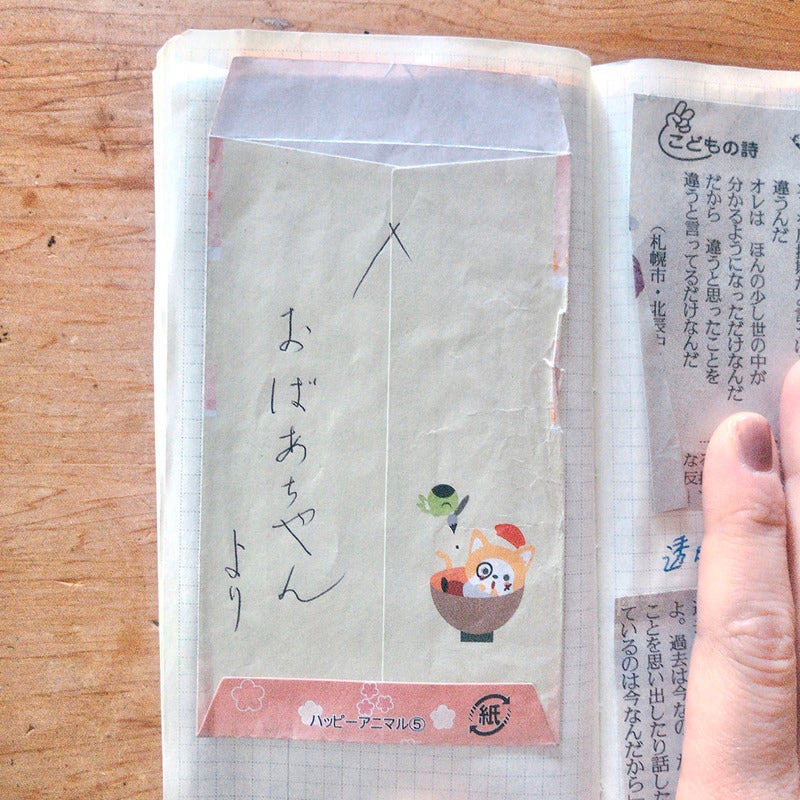 おばあちゃん
より
ハッピーアニマル⑤
紙
こどもの詩
違うんだ
オレは ほんの少し世の中が
分かるようになっただけなんだ
だから 違うと思ったことを
違うと言ってるだけなんだ
（札幌市・北辰中
な反
透
よ。過去は今なの
ことを思い出したり話した
ているのは今なんだから